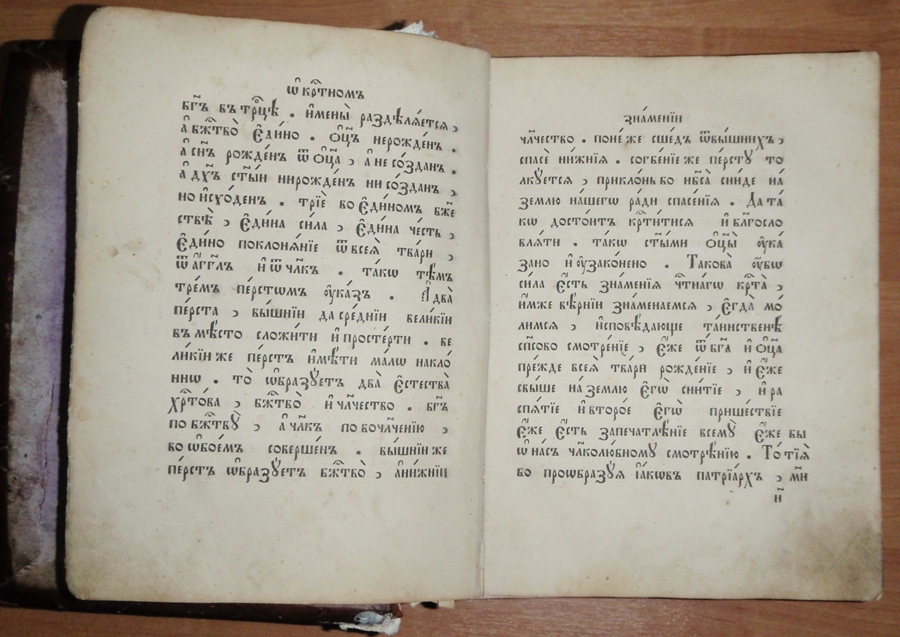 ѡ҆ крⷭ҇тномъ
бг҃ъ въ трⷪ҇цѣ . и҆мены̀ раздѣлѧ́етсѧ ,
а҆ бж҃тво̀ є҆ди́но . ѻ҆ц҃ъ нерожде́н .
а҆ сн҃ъ рожде́н ѿ ѻ҆ц҃а̀ , а҆ не со́здан .
а҆ дх҃ъ ст҃ы́и нирожде́н ни со́здан ,
но и҆схо́ден . трїѐ во є҆ди́номъ бж҃е
ствѣ̀ , є҆ди́на си́ла , є҆ди́на че́сть ,
є҆ди́но поклонѧ́нїе ѿ всеѧ̀ тва́ри ,
ѿ а҆́гг҃лъ и҆ ѿ чл҃къ . та́кѡ тѣ́мъ
тре́мъ перстѡмъ ѹ҆ка́зъ . А҆ два̀
пе́рста , вы́шнїи да сре́днїи вели́кїи
въмѣ́сто сложи́ти и҆ просте́рти . ве
ли́кїи же перстъ и҆мѣ́ти ма́лѡ накло́
ниѡ . то̀ ѡ҆бразꙋ́етъ два̀ є҆стества̀
хрⷭ҇то́ва , бж҃тво̀ и҆ чл҃чество . бг҃ъ
по бж҃твꙋ̀ , а҆ чл҃къ по вочл҃че́нїю ,
во ѡ҆бое́мъ соверше́н . вы́шнїи же
пе́рстъ ѡ҆бразꙋ́етъ бж҃тво̀ , а҆ни́жнїи
зна́менїи
чл҃чество . поне́же сше́дъ ѿвы́шнихъ ,
спасѐ ни́жнїѧ . согбе́нїе же пе́рстꙋ то
лкꙋ́етсѧ , приклонь бо нб҃са̀ сни́де на́
зе́млю на́шегѡ ра́ди спасе́нїѧ . Да та́
кѡ досто́итъ крⷭ҇ти́тисѧ и҆ бл҃госло
влѧ́ти . та́кѡ ст҃ы́ми ѻ҆ц҃ы̀ ѹ҆ка́
зано и҆ ѹ҆зако́нено . Такова̀ ѹ҆́бѡ
си́ла є҆́сть зна́менїѧ чтⷭ҇на́гѡ крⷭ҇та̀ ,
и҆́мже вѣ́рнїи зна́менаемсѧ , є҆гда̀ мо́
лимсѧ , и҆сповѣ́дающе та́инственѣ
сп҃со́во смотре́нїе , є҆́же ѿ бг҃а и҆ ѻ҆ц҃а̀
пре́жде всеѧ̀ тва́ри рожде́нїе , и҆ є҆́же
свы́ше на́ землю є҆гѡ̀ сни́тїе , и҆ ра
спѧ́тїе и҆ второ́е є҆гѡ̀ прише́ствїе
є҆́же є҆́сть запечатлѣ́нїе всемꙋ̀ є҆́же бы
ѡ҆ насъ чл҃колю́бномꙋ смотре́нїю . То́ тїѧ̀
во проѡбразꙋѧ і҆а́кѡвъ патрїа́рхъ ,
и҃